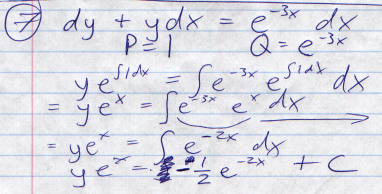 ⑦ dy + ydx = e^{-3x} dx
P = 1 Q = e^{-3x}
ye^{∫1dx} = ∫e^{-3x} e^{∫1dx} dx
= ye^x = ∫e^{-3x} e^x dx
= ye^x = ∫e^{-2x} dx
ye^x = -1/2 e^{-2x} + C